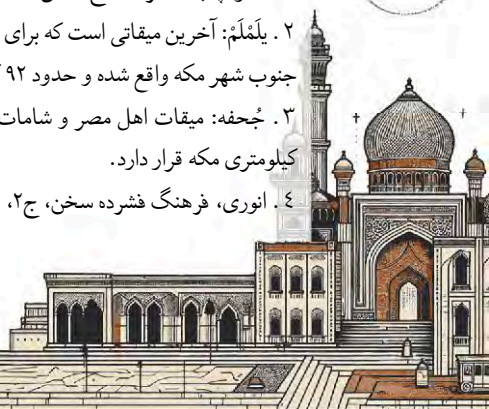 ۲ . یلَمْلَمْ: آخرین میقاتی است که برای
جنوب شهر مکه واقع شده و حدود ۹۲
۳ . جُحفه: میقات اهل مصر و شامات
کیلومتری مکه قرار دارد.
٤ . انوری، فرهنگ فشرده سخن، ج۲،